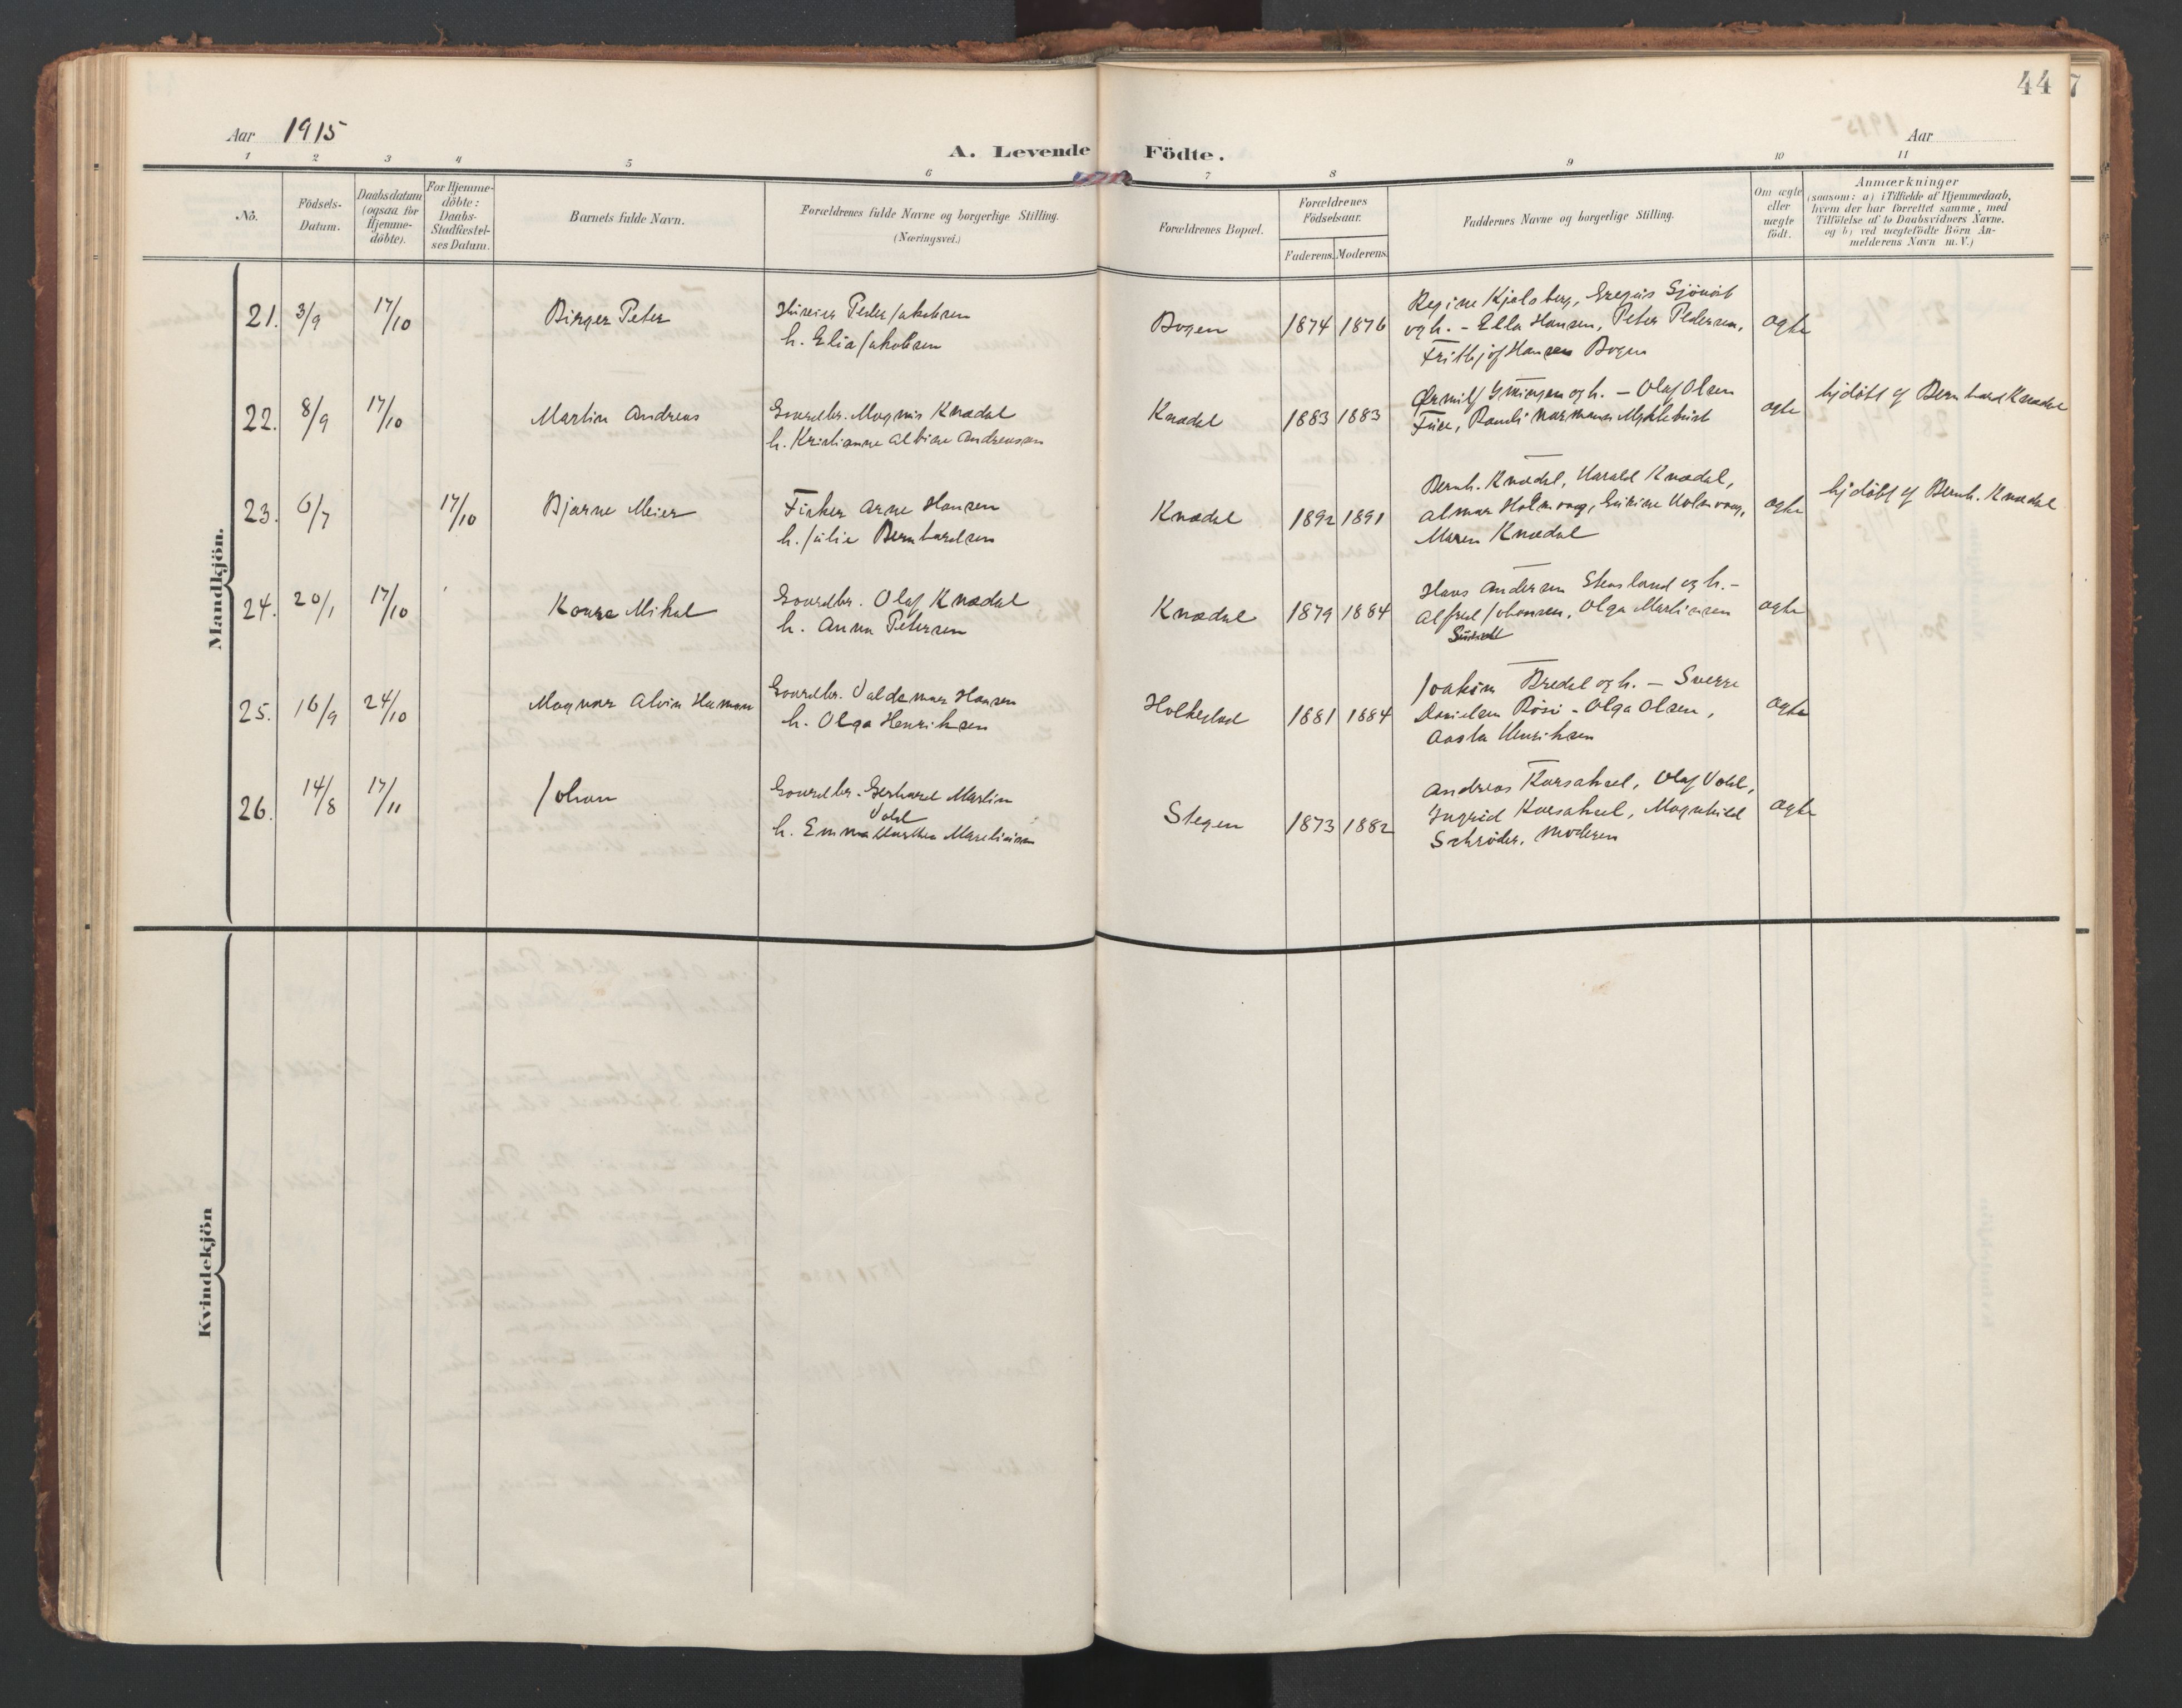 44
7
Aar 1915
A. Levende Födte.
Aar
1 2 3 4 5 6 7 8 9 10 11
No.
Födsels-
Datum.
Daabsdatum
(ogsaa for
Hjemme-
döbte).
For Hjemme-
döbte:
Daabs-
Stadfæstel-
ses Datum.
Barnets fulde Navn.
Forældrenes fulde Navne og borgerlige Stilling.
(Næringsvei.)
Forældrenes Bopæl.
Forældrenes
Födselsaar.
Faderens. Moderens.
Faddernes Navne og borgerlige Stilling.
Om ægte
eller
uægte
födt.
Anmærkninger
(saasom: a) i Tilfælde af Hjemmedaab,
hvem der har forrettet samme, med
Tilföielse af to Daabsvidners Navne.
og b) ved uægtefödte Börn An-
melderens Navn m. V.)
Mandkjön.
21. 3/9 17/10 Birger Peter
Peder Jakobsen
h. Elia Jakobsen
Bogen 1874 1876
Regine Kjelsberg,
og h. - Ella Hansen, Peter Pedersen,
Frithjof Hansen Bogen
ægte
22. 8/9 17/10 Martin Andreas
Gaardbr. Magnus Knædal
h. Kristianne Albine Andreassen
Knædal 1883 1883
og h. - Olaf Olsen
Normann Myklebust
ægte
hjdöbt af Bernhard Knædal
23. 6/7 17/10 Bjarne Meier
Fisker Arne Hansen
h. Julie Bernhardsen
Knædal 1892 1891
Bernh. Knædal, Harald Knædal,
Almar Holmvaag, Holmvaag,
Maren Knædal
ægte
hjdöbt af Bernh. Knædal
24. 20/1 17/10 Mikal
Gaardbr. Olaf Knædal
h. Anna Petersen
Knædal 1879 1884
Hans Andersen Stensland og h. -
Alfred Johansen, Olga Martinsen
ægte
25. 16/9 24/10 Magnar Alvin Herman
Gaardbr. Valdemar Hansen
h. Olga Henriksen
Holkestad 1881 1884
Joakim Bredal og h. - Sverre
Danielsen Rösö - Olga Olsen,
Aasta Henriksen
ægte
26. 14/8 17/11 Johan
Gaardbr. Gerhard Martin
Vohl
h. Emma Marthea
Stegen 1873 1882
Andreas Karsahsel, Olaf Vohl,
Ingrid Karsahsel, Magnhild
Schröder, Moderen
ægte
Kvindekjön